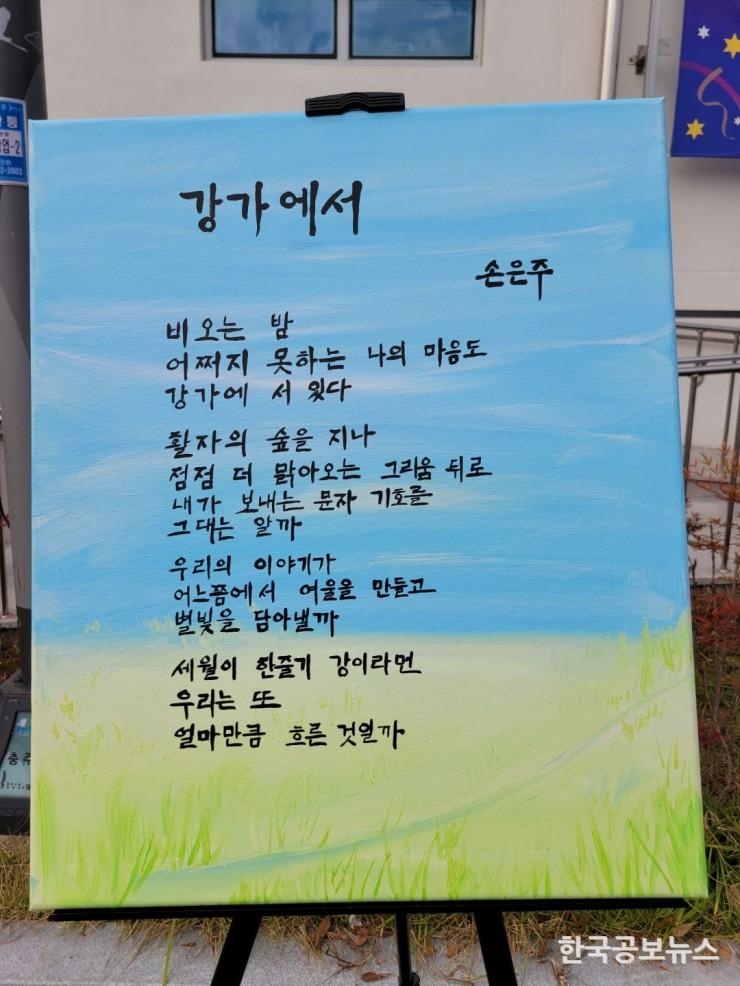 강가에서
손은주
비오는 밤
어쩌지 못하는 나의 마음도
강가에 서 있다
활자의 숲을 지나
점점 더 맑아오는 그리움 뒤로
내가 보내는 문자 기호를
그대는 알까
우리의 이야기가
어느쯤에서 여울을 만들고
별빛을 담아낼까
세월이 한줄기 강이라면
우리는 또
얼마만큼 흐른 것일까
한국공보뉴스